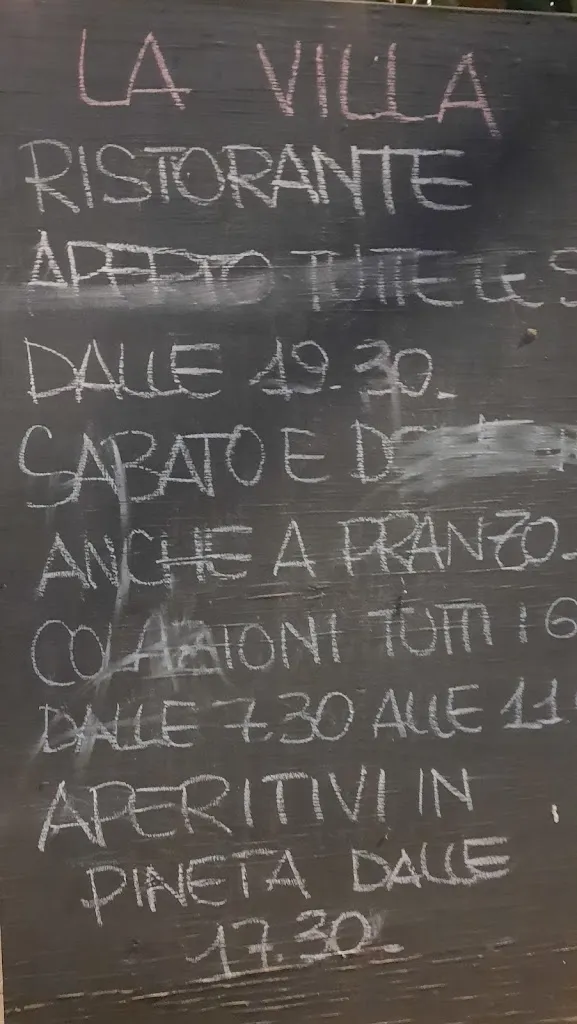 LA VILLA
RISTORANTE
APERTO TUTTE LE S
DALLE 19.30.
SABATO E D
ANCHE A PRANZO.
COLAZIONI TUTTI I G
DALLE 7.30 ALLE 11
APERITIVI IN
PINETA DALLE
17.30.